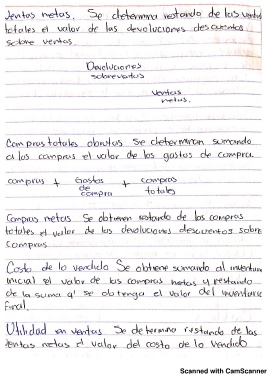 Ventas netas. Se determina restando de las ventas
totales el valor de las devoluciones descuentos
sobre ventas.
Devoluciones
sobreventas
Ventas
netas.
Compras totales o brutas se determinan sumando
a las compras el valor de los gastos de compra.
compras + Gastos de compra + compras totales
Compras netas Se obtienen restando de las compras
totales el valor de las devoluciones descuentos sobre
compras
Costo de lo vendido Se obtiene sumando al inventario
inicial el valor de las compras netas y restando
de la suma q' se obtenga el valor del inventario
final.
Utilidad en ventas Se determina restando de las
ventas netas el valor del costo de lo vendido
Scanned with CamScanner